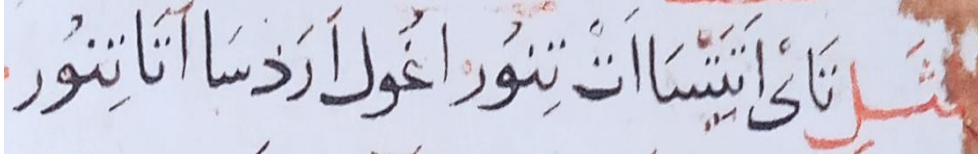 مَثَل تَاىْ اَتَتسَا اَتْ تِنوُر اغُول اَرَذسَا اَتَا تِنوُر